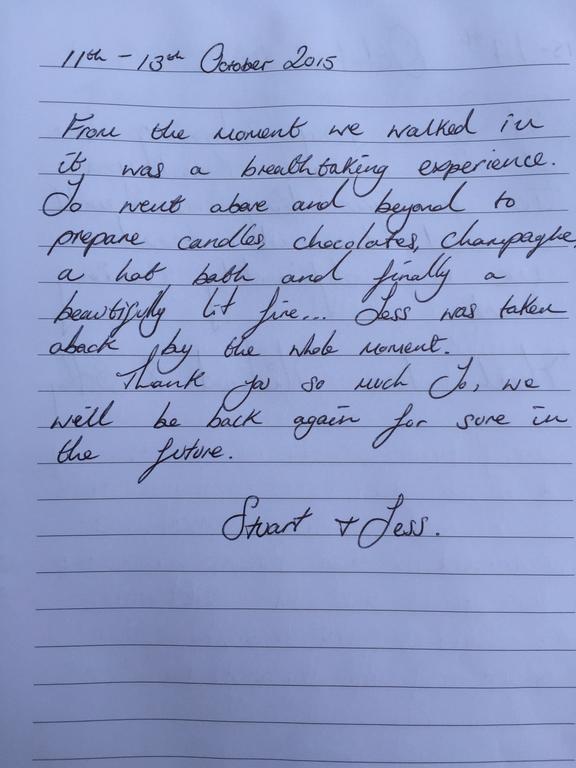 11th - 13th October 2015
From the moment we walked in
it was a breathtaking experience.
Jo went above and beyond to
prepare candles, chocolates, champagne,
a hot bath and finally a
beautifully lit fire... Jess was taken
aback by the whole moment.
Thank you so much Jo, we
we'll be back again for sure in
the future.
Stuart + Jess.